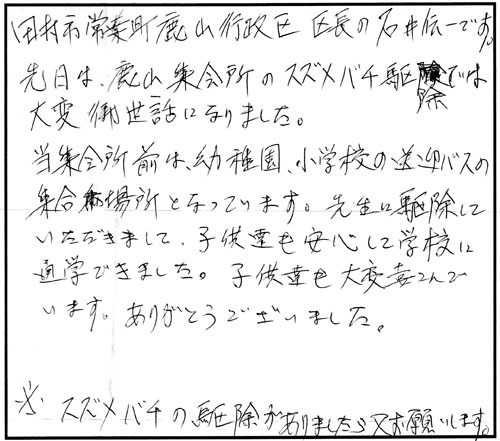 田村市常葉町鹿山行政区 区長の石井伝一です。
先日は、鹿山集会所のスズメバチ駆除では
大変御世話になりました。
当集会所前は、幼稚園、小学校の送迎バスの
集合場所となっています。先生に駆除して
いただきまして、子供達も安心して学校に
通学できました。子供達も大変喜こんで
います。ありがとうございました。
※ スズメバチの駆除がありましたら又お願いします。